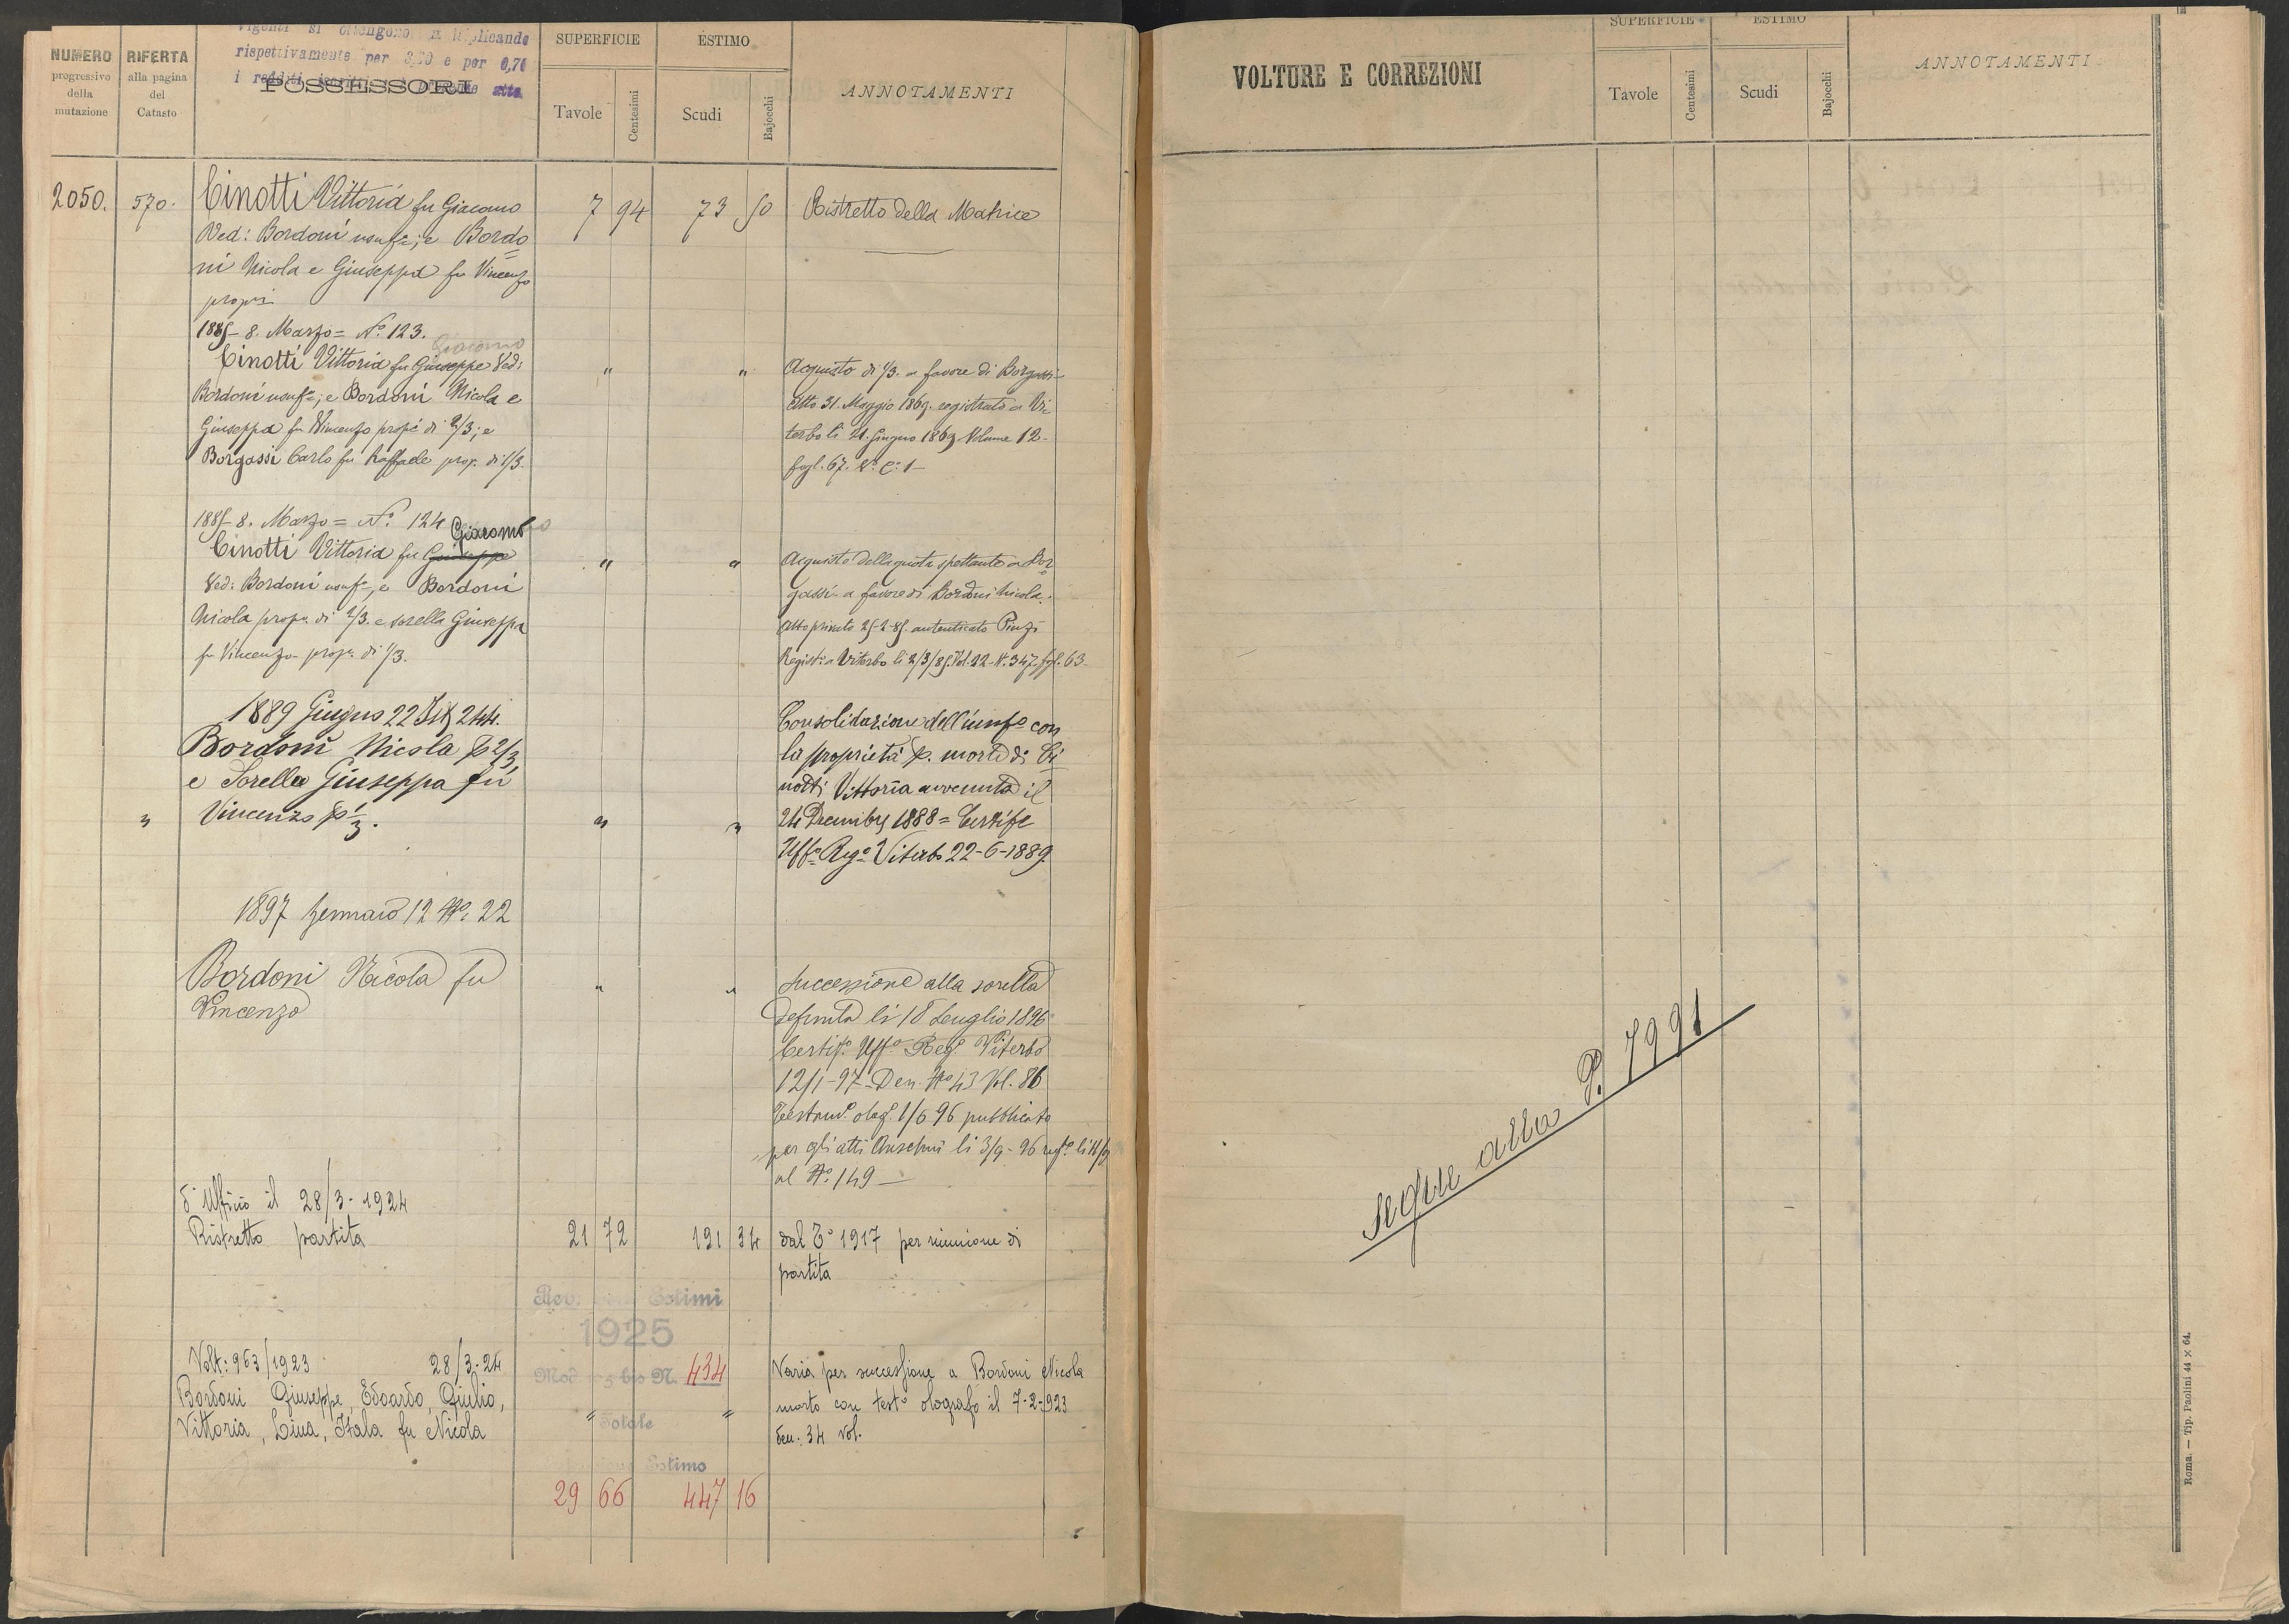 NUMERO
progressivo
della
mutazione
RIFERTA
alla pagina
del
Catasto
vigenti si ottengono
rispettivamente per e per 0,70
i redditi
POSSESSORI
SUPERFICIE
Tavole
Centesimi
ESTIMO
Scudi
Bajocchi
ANNOTAMENTI
2050. 570. Cinotti Vittoria fu Giacomo 7 94 73 50 Ristretto della Matrice
Ved: Bordoni usufª; e Bordo
ni Nicola e Giuseppa fu Vincenzo
propri
1885- 8. Marzo = Nº. 123.
Giacomo
Cinotti Vittoria fu Giuseppe Ved: " " Acquisto di 1/3. a favore di Borgassi-
Bordoni usufª; e Bordoni Nicola e Atto 31. Maggio 1869. registrato a Vi
Giuseppa fu Vincenzo propi di 2/3; e terbo li 21. Giugno 1869 Volume 12-
Borgassi Carlo fu Raffaele prop. di 1/3. fogl. 67. Rº. Cº: 1-
1885- 8. Marzo = Nº. 124
Giacomo
Cinotti Vittoria fu Giuseppe " " Acquisto della quota spettante a Bor
Ved: Bordoni usufª, e Bordoni gassi a favore di Bordoni Nicola.
Nicola propº. di 2/3. e sorella Giuseppa Atto privato 25-2-85. autenticato Pinzi
fu Vincenzo propª. di 1/3. Registº a Viterbo li 2/3/85. Vol. 22- Nº. 347. fogl. 63-
1889 Giugno 22 244. Consolidazione dell'usufº con
Bordoni Nicola p 2/3, la proprietà p. morte di Ci
e Sorella Giuseppa fu notti Vittoria avvenuta il
" Vincenzo p 1/3. " " 24 Dicembre 1888 = Certifº
Uffº Regº Viterbo 22-6-1889.
1897 Gennaio 12 Nº. 22
Bordoni Nicola fu " " Successione alla sorella
Vincenzo defunta li 18 Luglio 1896
Certifº. Uffº Regº. Viterbo
12/1-97 - Den. Nº 43 Vol. 86
Testamº. olog. 1/6 96 pubblicato
per gli atti Anselmi li 3/9- 96
al Nº. 149 —
d'Ufficio il 28/3- 1924
Ristretto partita 21 72 191 34 dal Tº 1917 per riunione di
partita
Rev. Estimi
1925
Mod. bis N. 434
Volt: 963/1923 28/3-24 Varia per successione a Bordoni Nicola
Bordoni Giuseppe, Edoardo, Giulio, " " morto con testº olografo il 7-2-923
Totale
Vittoria, Lina, Itala fu Nicola den. 34 vol.
Estimo
29 66 447 16
VOLTURE E CORREZIONI
SUPERFICIE
Tavole
Centesimi
ESTIMO
Scudi
Bajocchi
ANNOTAMENTI
segue alla P. 7991
Roma. — Tip. Paolini 44 × 64.